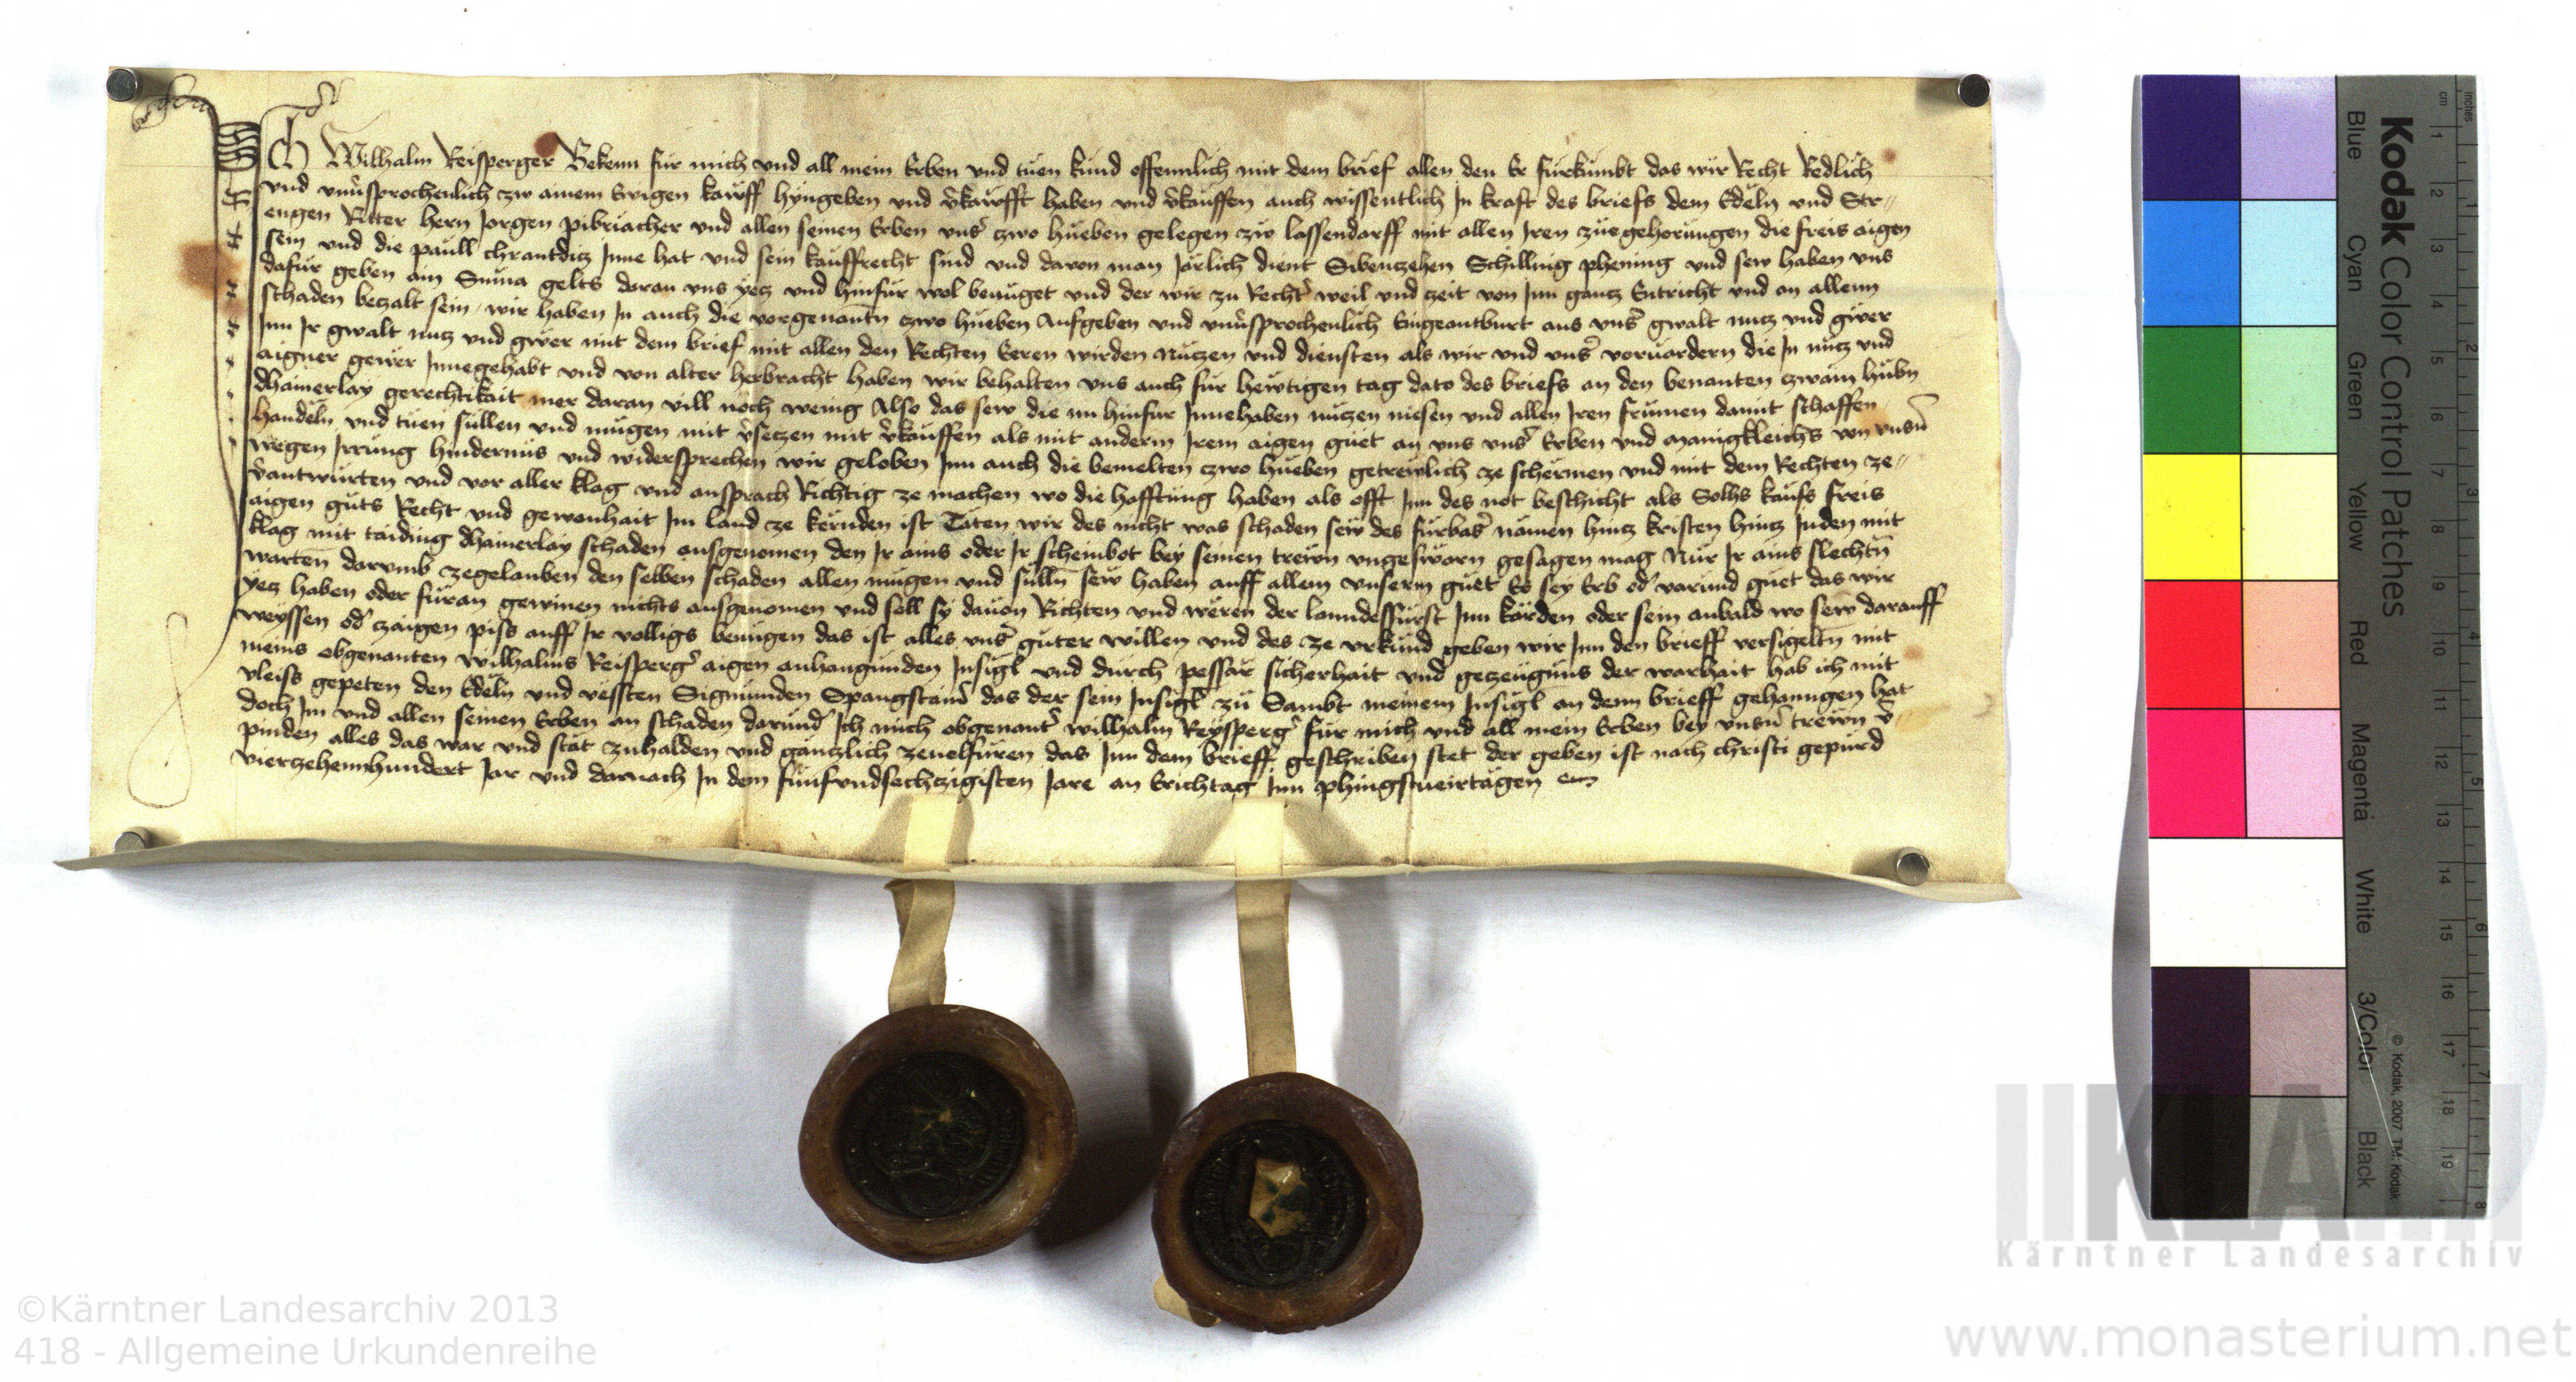 Ich Wilhalm Reisperger Bekenn für mich und all mein Erben und tuen kund offennlich mit dem brief allen den Er fürkumbt das wir Recht Redlich
und unu͛sprochenlich zw ainem Ewigen kawff hyngeben und v͛kawfft haben und v͛kauffen auch wissentlich In kraft des briefs dem Edeln und Str//
engen Ritter hern Jorgen pibriacher und allen seinen Erben uns͛ zwo hueben gelegen zw lassendarff mit allen Iren zuegehorungen die freis aigen
sein und die paull chrantditz Inne hat und sein kauffrecht sind und davon man Järlich dient Sibenczehen Schilling phening und sew haben uns
dafür geben ain Suma gelts daran uns yetz und hinfür wol benüget und der wir zu Recht͛ weil und zeit von Inn gantz Entricht und an allenn
schaden betzalt sein / wir haben In auch die vorgenantn czwo hueben Aufgeben und unu͛sprochenlich Eingeantburt aus uns͛ gwalt nutz und gwer
Inn Ir gwalt nutz und gwer mit dem brief mit allen den Rechten Eeren wirden Nutzen und diensten als wir und uns͛ vorvardern die In nutz und
aigner gewer Innegehabt und von alter herbracht haben wir behalten uns auch für hewtigen tag dato des briefs an den benanten zwain hubn
dhainerlay gerechtikait mer daran vill noch wenig Also das sew die nu hinfur Innehaben nutzen niesen und allen Iren frumen damit schaffen
handeln und tuen sullen und mugen mit v͛setzen mit v͛kauffen als mit anderm Irem aigen guet an uns uns͛ Erben und manigkleichs von unsn͛
wegen Irrung hindernüs und widersprechen wir geloben Inn auch die bemelten czwo hueben getrewlich ze schermen und mit dem Rechten ze//
v͛antwurten und vor aller klag und ansprach Richtig ze machen wo die hafftung haben als offt Inn des not beschicht als Solhs kaufs freis
aigen guts Recht und gewonhait Im land ze kernden ist Täten wir des nicht was schaden sew des fürbas͛ namen hintz kristen hintz Juden mit
klag mit taiding dhainerlay schaden ausgenomen den Ir ains oder Ir scheinbot bey seinen trewn ungesworn gesagen mag Nur Ir ains slechtn
warten darumb zegelauben den selben schaden allen mugen und sulln sew haben auff allem unserm guet Es sey Erb od͛ varund guet das wir
yetz haben oder füran gewinen nichts ausgenomen und soll sy davon Richten und weren der lanndesfürst Inn kärden oder sein anbald wo sew darauff
weyssen od͛ zaigen piss auff Ir volligs benugen das ist alles uns͛ guter willen und des ze urkund geben wir Inn den brieff versigeltn mit
meins obgenanten wilhalms Reisperg͛ aigen anhangunden Insigl und durch pessar sicherhait und gezeugnus der warhait hab ich mit
vleiss gepeten den Edeln und vessten Sigmunden Spangstain͛ das der sein Insigl zu Sambt meinem Insigl an denn brieff gehanngen hat
doch Im und allen seinen Erben an schaden darund͛ Ich mich obgenant͛ wilhalm Reysperg͛ für mich und all mein Erben bey unsn͛ trewn v͛
pinden alles das war und stät zuhalden und gantzlich zevolfüren das Inn dem brieff geschriben stet der geben ist nach christi gepurd
vierzehennhundert Jar und darnach In dem fünfundsechczigisten Jare an Erichtag Inn phingstveirtagen
Kodak Color Control Patches
Blue Cyan Green Yellow Red Magenta White 3/Color Black
© Kodak, 2007 TM: Kodak
inches 1 2 3 4 5 6 7 8
cm 1 2 3 4 5 6 7 8 9 10 11 12 13 14 15 16 17 18 19
KLA
Kärntner Landesarchiv
©Kärntner Landesarchiv 2013
418 - Allgemeine Urkundenreihe
www.monasterium.net